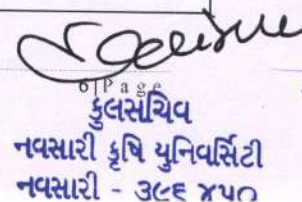 6|Page
કુલસચિવ
નવસારી કૃષિ યુનિવર્સિટી
નવસારી - ૩૯૬ ૪૫૦